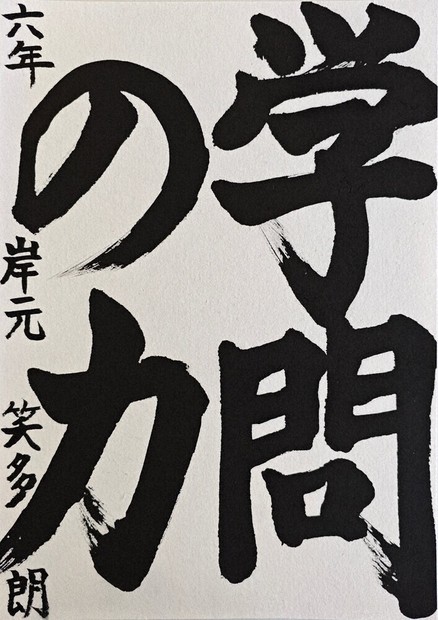 学問
の力
六年 岸元 笑多朗